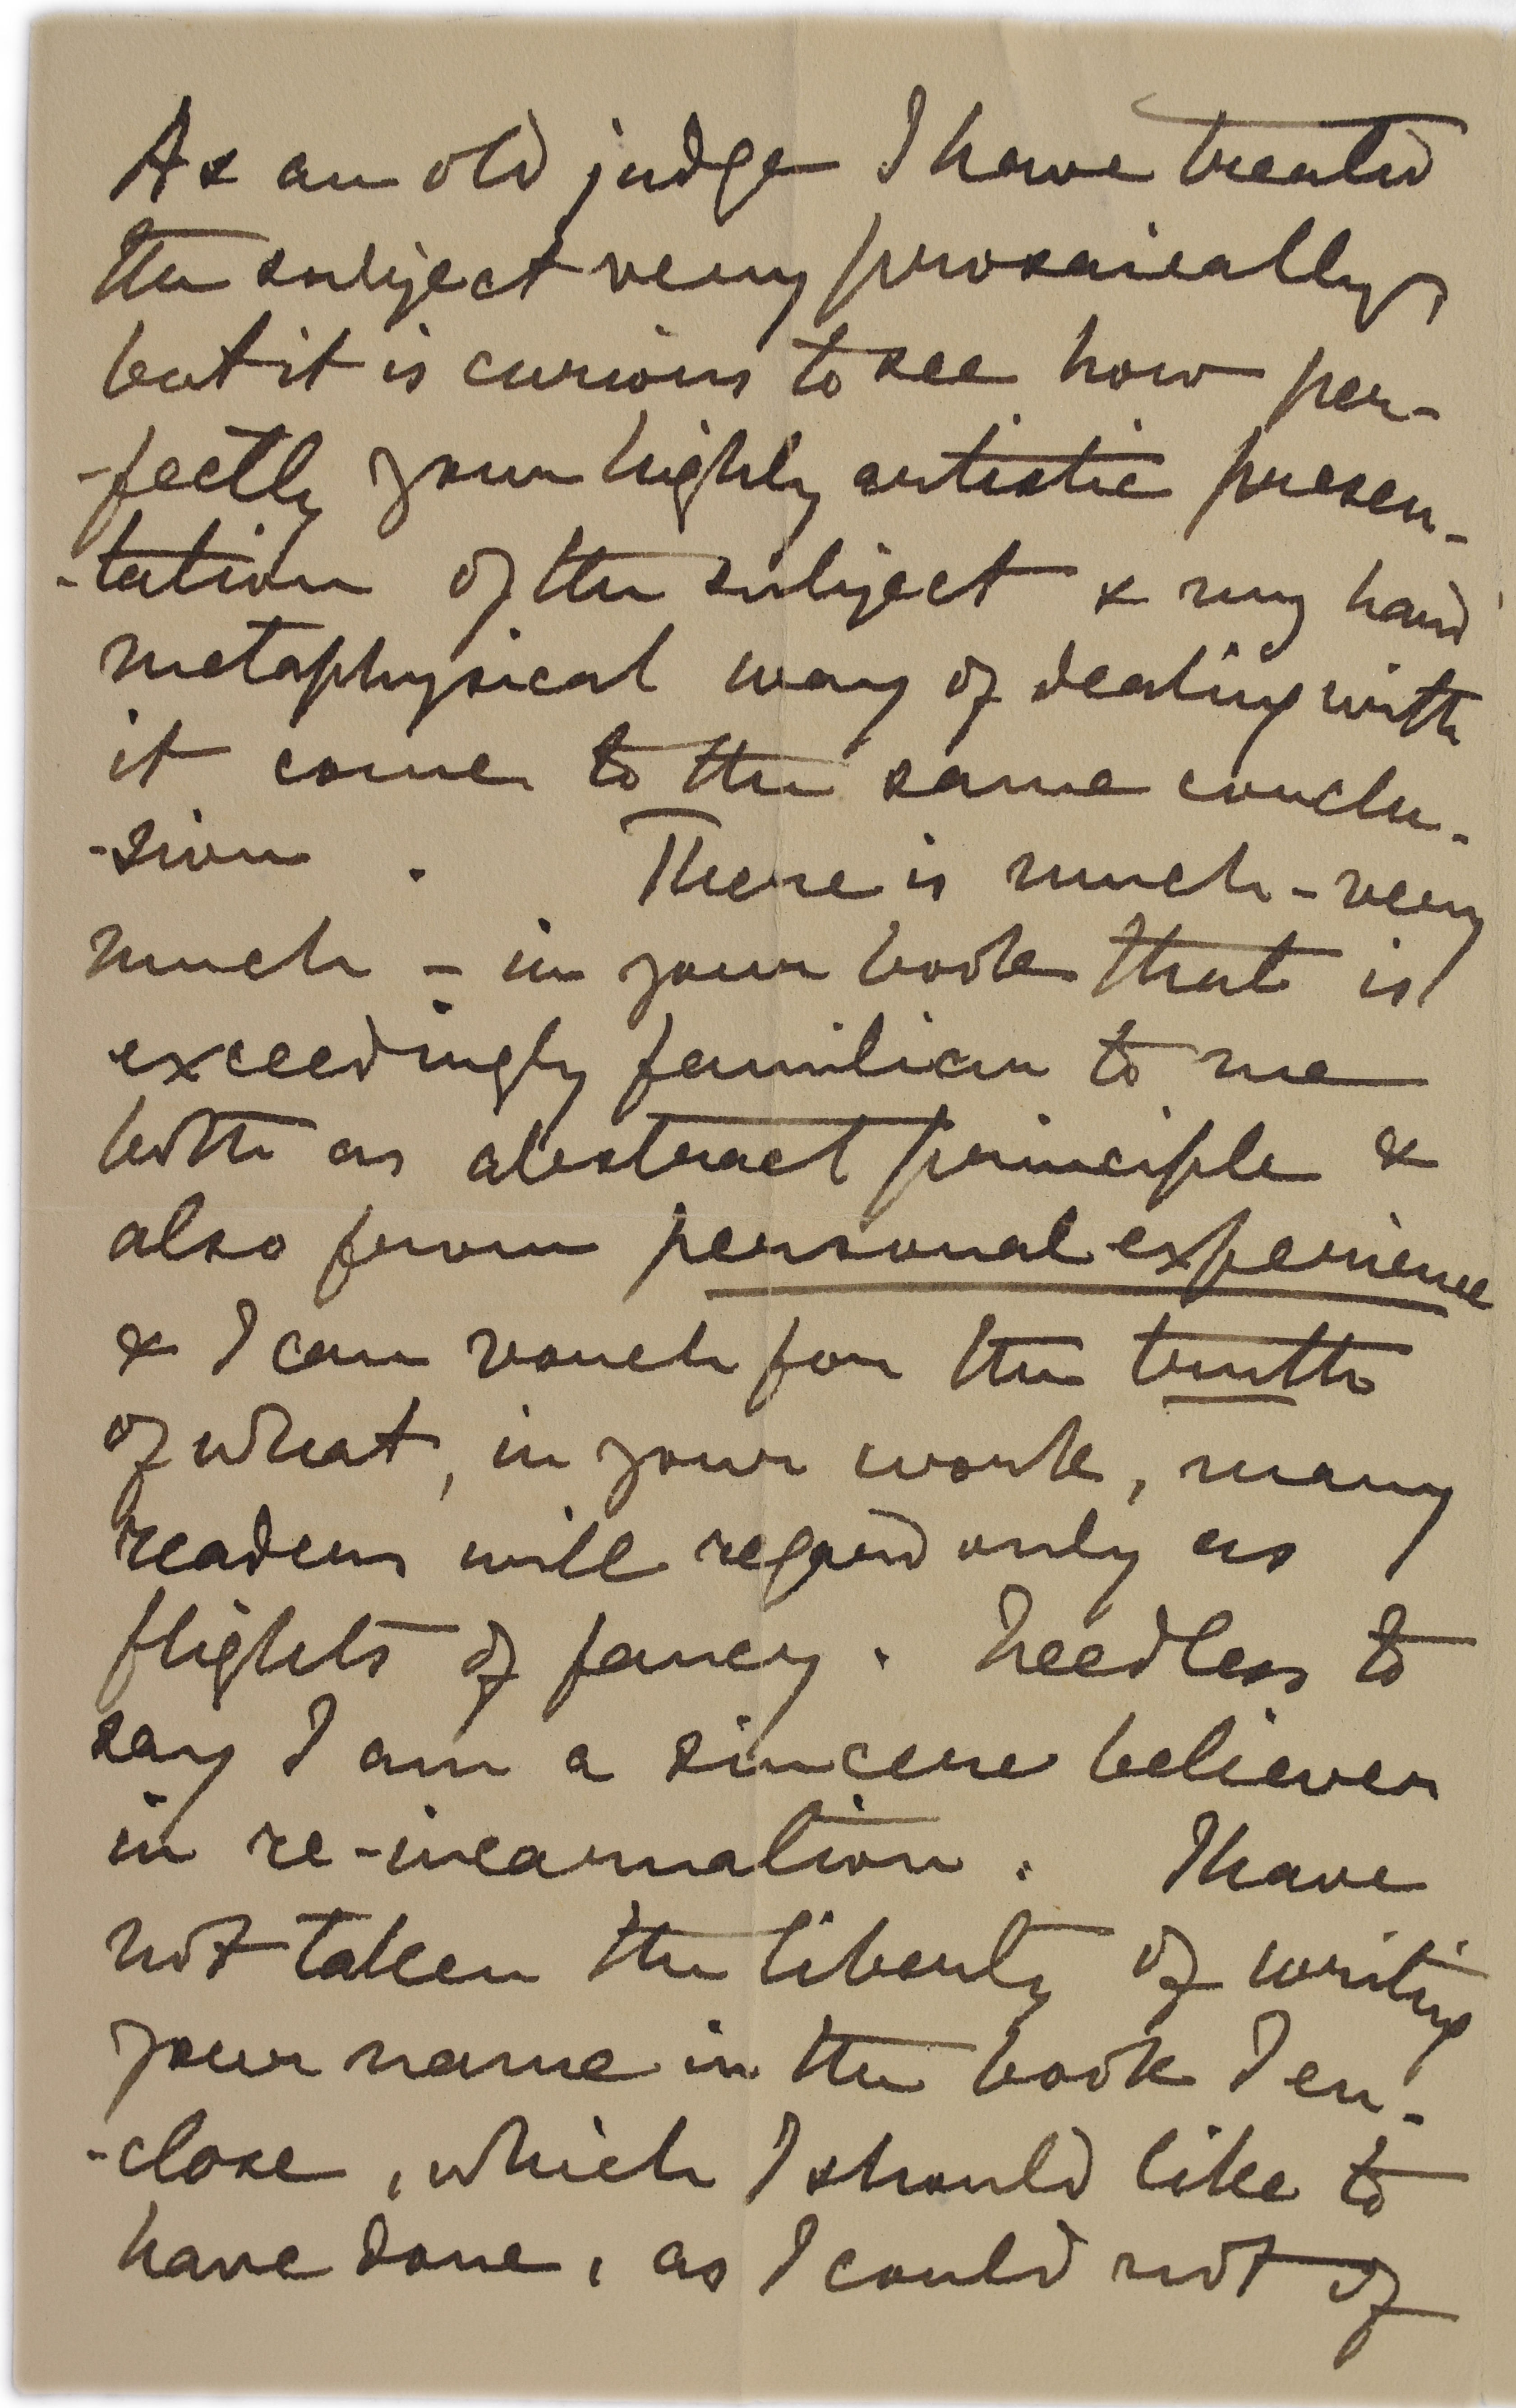 As an old judge I have treated
the subject very prosaically,
but it is curious to see how per-
-fectly your highly artistic presen-
-tation of the subject & my hard
metaphysical way of dealing with
it come to the same conclu-
-sion. There is much - very
much - in your book that is
exceedingly familiar to me
both as abstract principle &
also from personal experience
& I can vouch for the truth
of what, in your work, many
readers will regard only as
flights of fancy. Needless to
say I am a sincere believer
in re-incarnation. I have
not taken the liberty of writing
your name in the book I en-
-close, which I should like to
have done, as I could not of